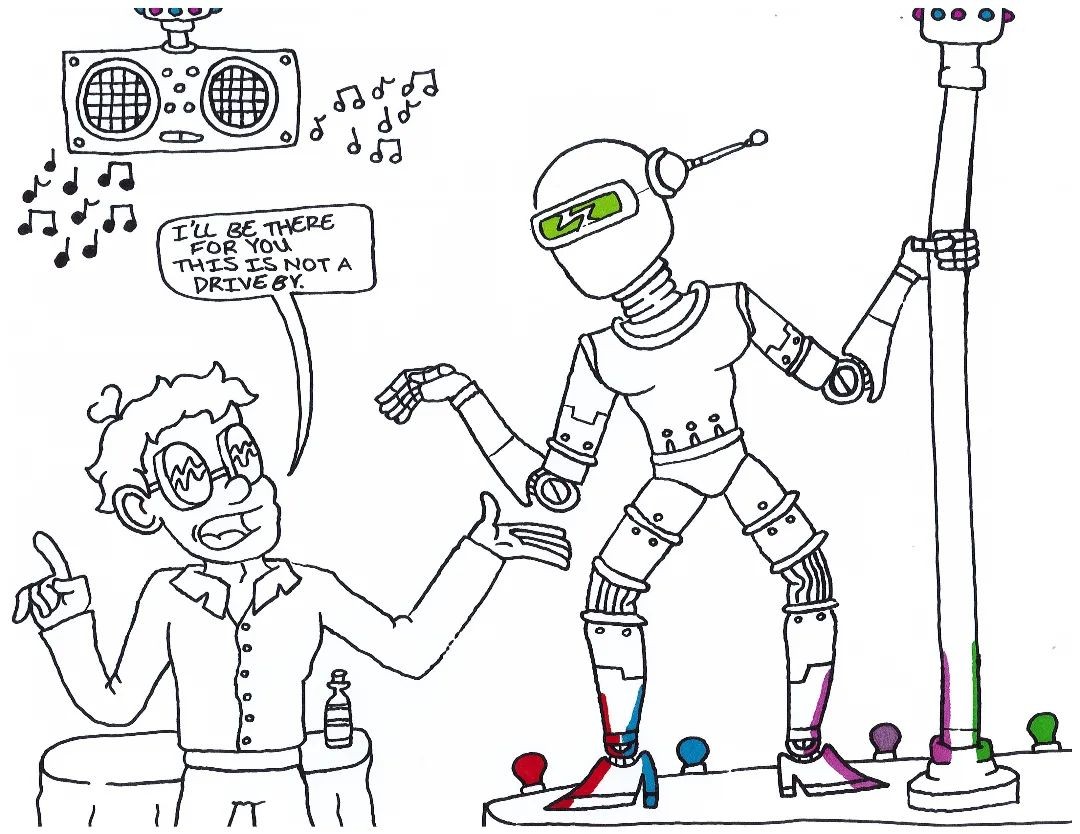 I'LL BE THERE
FOR YOU
THIS IS NOT A
DRIVE BY.